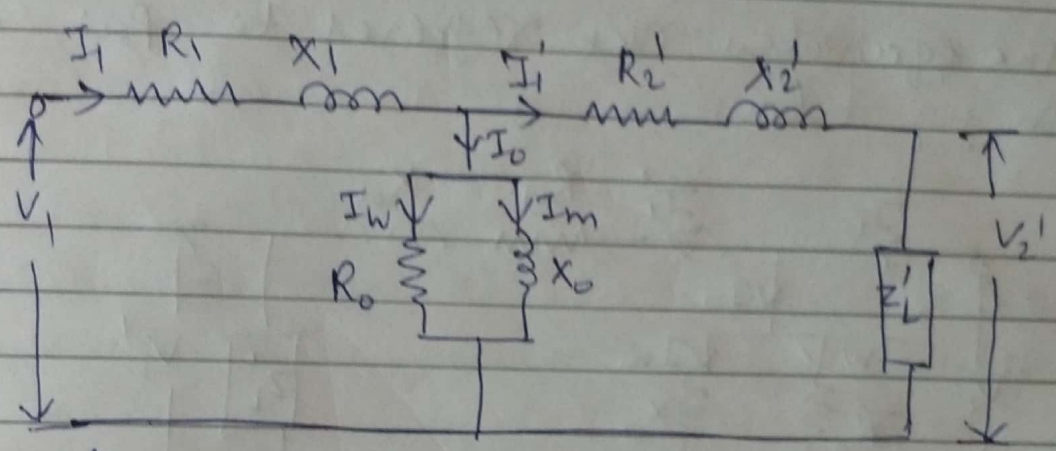 I₁ R₁ X₁ I₁' R₂' X₂'
I₀
V₁ I_w I_m V₂'
R₀ X₀ Z_L'